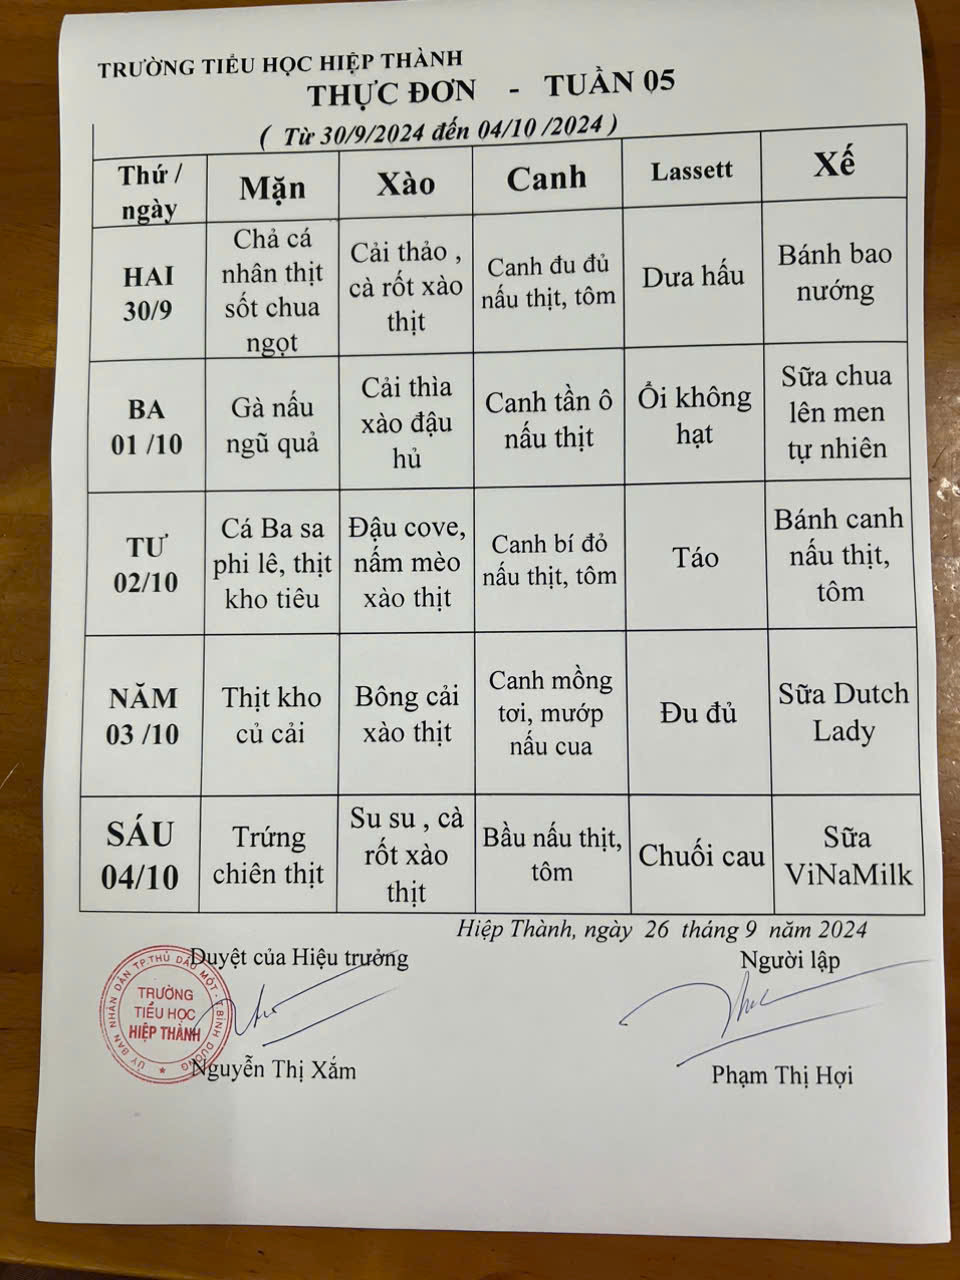 TRƯỜNG TIỂU HỌC HIỆP THÀNH
THỰC ĐƠN - TUẦN 05
( Từ 30/9/2024 đến 04/10 /2024 )
Thứ / ngày
Mặn
Xào
Canh
Lassett
Xế
HAI
30/9
Chả cá
nhân thịt
sốt chua
ngọt
Cải thảo ,
cà rốt xào
thịt
Canh đu đủ
nấu thịt, tôm
Dưa hấu
Bánh bao
nướng
BA
01 /10
Gà nấu
ngũ quả
Cải thìa
xào đậu
hủ
Canh tần ô
nấu thịt
Ổi không
hạt
Sữa chua
lên men
tự nhiên
TƯ
02/10
Cá Ba sa
phi lê, thịt
kho tiêu
Đậu cove,
nấm mèo
xào thịt
Canh bí đỏ
nấu thịt, tôm
Táo
Bánh canh
nấu thịt,
tôm
NĂM
03 /10
Thịt kho
củ cải
Bông cải
xào thịt
Canh mồng
tơi, mướp
nấu cua
Đu đủ
Sữa Dutch
Lady
SÁU
04/10
Trứng
chiên thịt
Su su , cà
rốt xào
thịt
Bầu nấu thịt,
tôm
Chuối cau
Sữa
ViNaMilk
Hiệp Thành, ngày 26 tháng 9 năm 2024
Duyệt của Hiệu trưởng
Người lập
ỦY BAN NHÂN DÂN TP.THỦ DẦU MỘT - T.BÌNH DƯƠNG
TRƯỜNG
TIỂU HỌC
HIỆP THÀNH
Nguyễn Thị Xắm
Phạm Thị Hợi